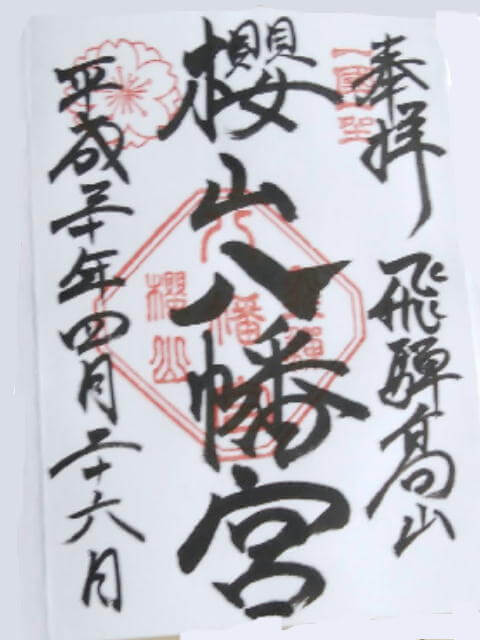 奉拝 飛騨高山
櫻山八幡宮
平成三十年四月二十六日
櫻山
八幡宮